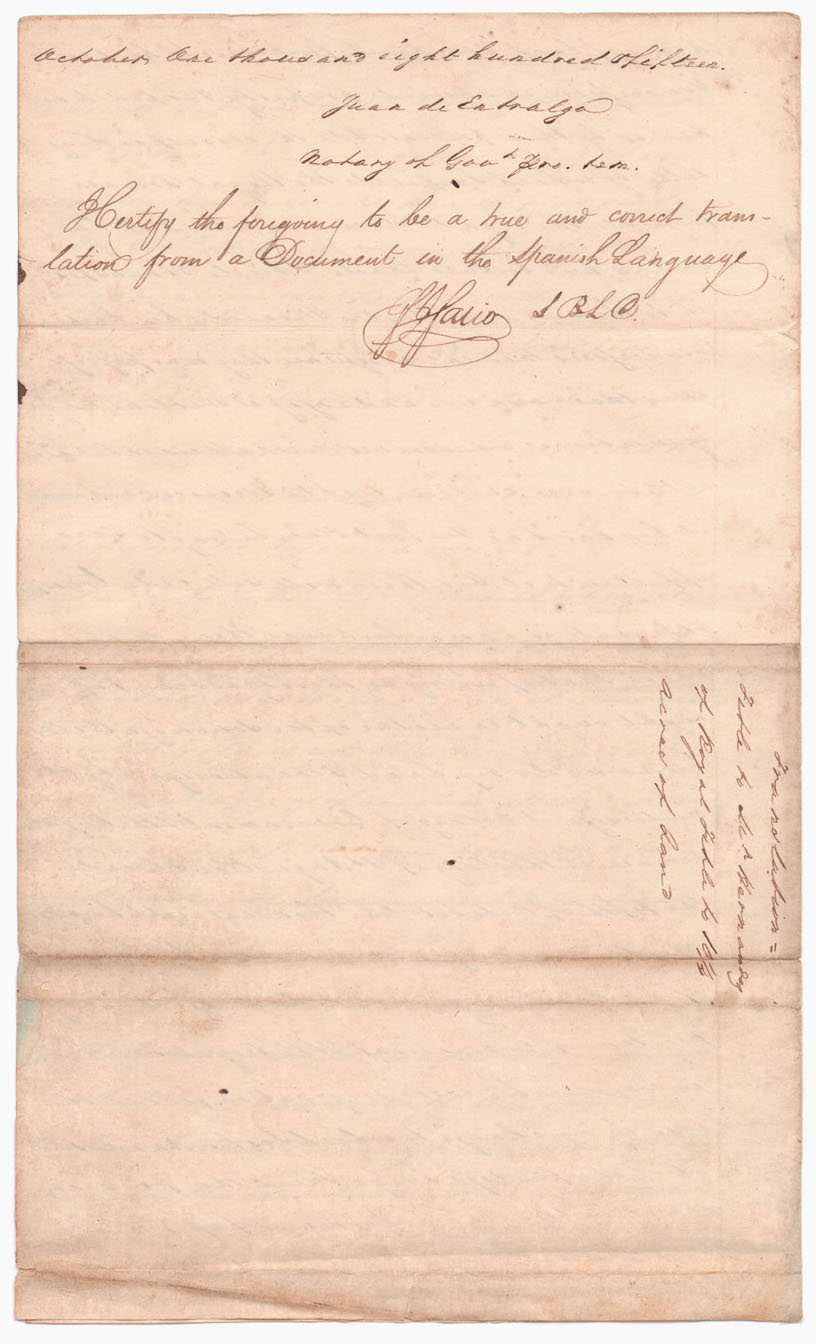 October, One thousand eight hundred & fifteen.
Juan de Entralgo
Notary of Gov.t pro. tem.
I Certify the foregoing to be a true and correct trans-
lation from a Document in the Spanish Language
S B L C.
Translation =
Title to Mr Hernandez
of Royal Title to 10⅓
Acres of Land